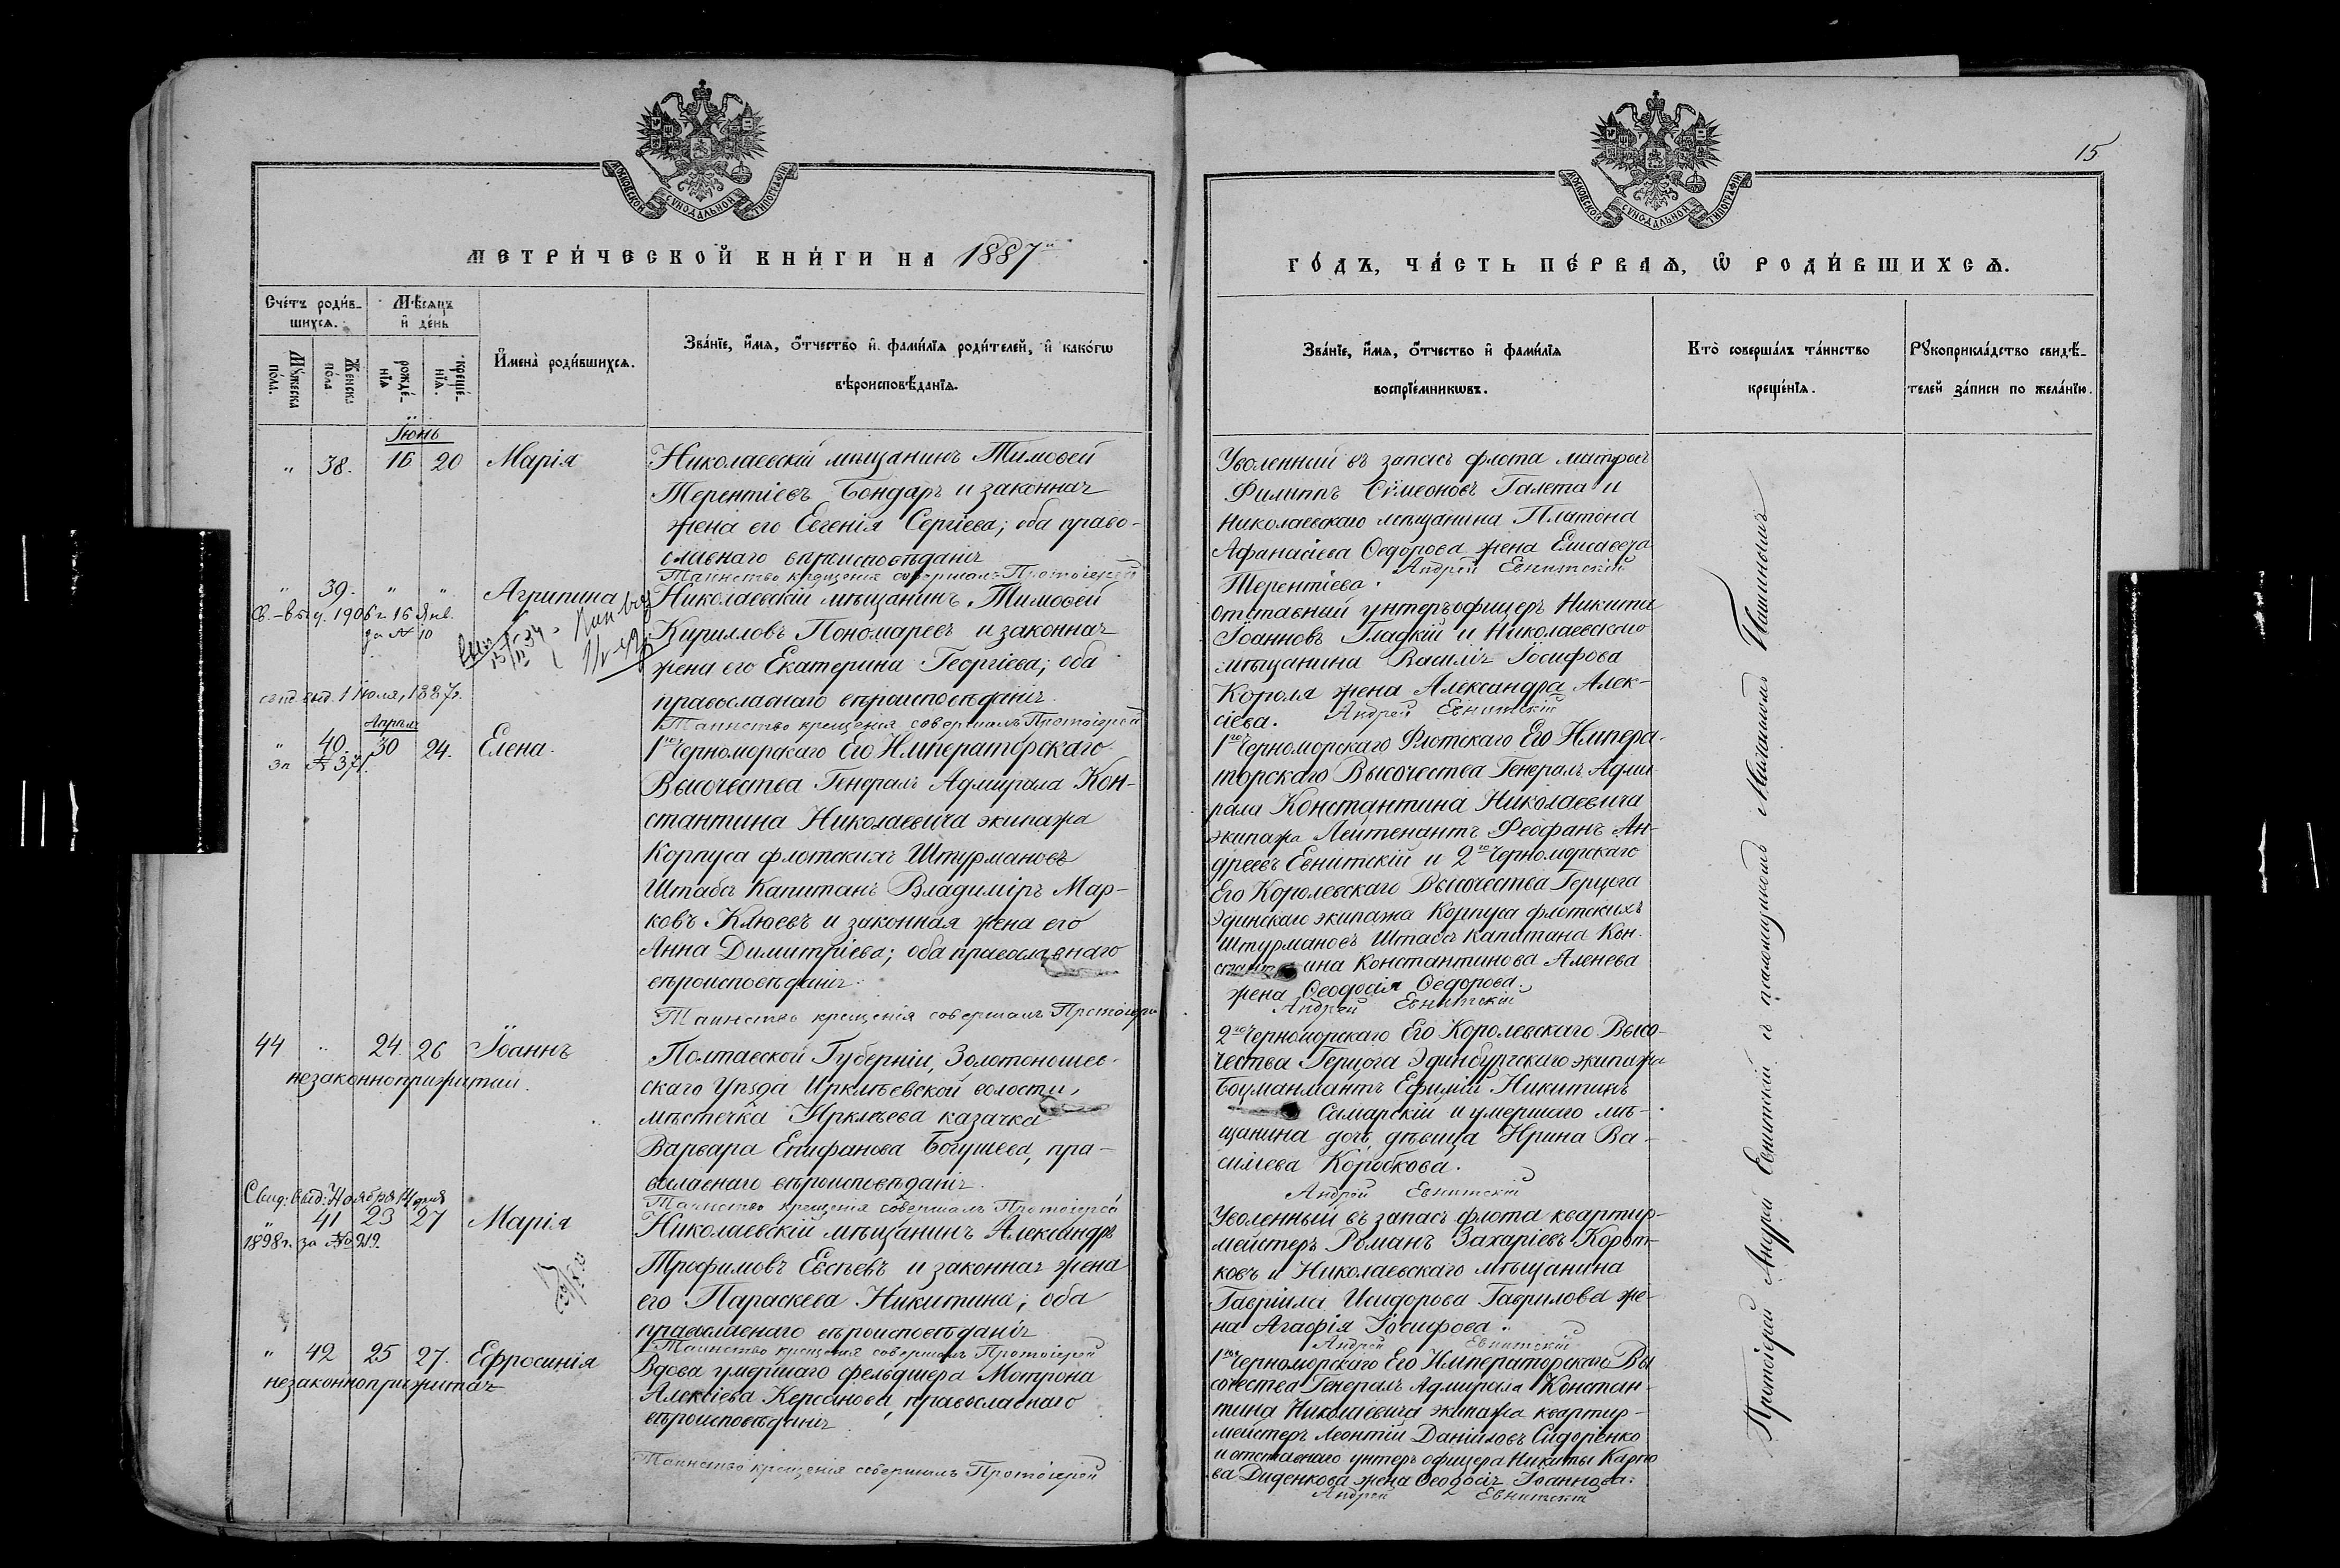 МОСКОВСКОЙ СѴНОДАЛЬНОЙ ТИПОГРАФІИ
МЕТРИ́ЧЕСКОЙ КНИ́ГИ НА 1887й
Сче́тъ роди́в-
шихсѧ.
Мѣ́сѧцъ
и҆ де́нь
И҆мена̀ роди́вшихсѧ.
Зва́нїе, и҆́мѧ, ѻ҆́тчество и҆ фами́лїѧ роди́телей, и҆ како́гѡ
вѣроисповѣ́данїѧ.
Мꙋ́жеска
по́ла.
Же́нска
по́ла
рожде́-
нїѧ
креще́-
нїѧ.
Іюнь
" 38. 16 20 Марія
Николаевскій мѣщанинъ Тимоѳей
Терентіевъ Бондарь и законная
жена его Евгенія Сергіева; оба право-
славнаго вѣроисповѣданія
Таинство крещенія совершалъ Протоіерей
" 39. " " Агрипина
Св.-во выд. 1906 г. 16 Янв.
за № 10
Николаевскій мѣщанинъ Тимоѳей
Кирилловъ Пономаревъ и законная
жена его Екатерина Георгіева; оба
православнаго вѣроисповѣданія
Таинство крещенія совершалъ Протоіерей
свид. выд. 1 Іюля, 1887 г.
Апрель
" 40. 30 24. Елена.
за № 371.
1го Черноморскаго Его Императорскаго
Высочества Генералъ Адмирала Кон-
стантина Николаевича экипажа
Корпуса флотскихъ Штурмановъ
Штабсъ Капитанъ Владиміръ Мар-
ковъ Клюевъ и законная жена его
Анна Димитріева; оба православнаго
вѣроисповѣданія.
Таинство крещенія совершалъ Протоіерей
44 " 24. 26 Іоаннъ
незаконноприжитый.
Полтавской Губерніи, Золотоношев-
скаго Уѣзда Иркліевской волости,
мѣстечка Ирклѣева казачка
Варвара Епифанова Богушева, пра-
вославнаго вѣроисповѣданія.
Таинство крещенія совершалъ Протоіерей
Свид. выд. Ноября 14 дня
" 41 23 27 Марія
1898 г. за № 919.
Николаевскій мѣщанинъ Александръ
Трофимовъ Евсѣевъ и законная жена
его Параскева Никитина; оба
православнаго вѣроисповѣданія
Таинство крещенія совершалъ Протоіерей
" 42 25 27. Евфросинія
незаконноприжитая
Вдова умершаго фельдшера Матрона
Алексіева Керсанова, православнаго
вѣроисповѣданія.
Таинство крещенія совершалъ Протоіерей
15
МОСКОВСКОЙ СѴНОДАЛЬНОЙ ТИПОГРАФІИ
ГО́ДЪ, ЧА́СТЬ ПЕ́РВАѦ, Ѡ҆ РОДИ́ВШИХСѦ.
Зва́нїе, и҆́мѧ, ѻ҆́тчество и҆ фами́лїѧ
воспрїе́мникѡвъ.
Кто̀ соверша́лъ та́инство
креще́нїѧ.
Рꙋкоприкла́дство свидѣ́-
телей за́писи по жела́нїю.
Уволенный въ запасъ флота матросъ
Филиппъ Сѵмеоновъ Галета и
Николаевскаго мѣщанина Платона
Афанасіева Ѳедорова жена Елисавета
Терентіева. Андрей Евнитскій
Отставный унтеръ офицеръ Никита
Іоанновъ Гладкій и Николаевскаго
мѣщанина Василія Іосифова
Короля жена Александра Алек-
сіева. Андрей Евнитскій
1го Черноморскаго Флотскаго Его Импера-
торскаго Высочества Генералъ Адми-
рала Константина Николаевича
экипажа Лейтенантъ Феофанъ Ан-
дреевъ Евнитскій и 2го Черноморскаго
Его Королевскаго Высочества Герцога
Эдинскаго экипажа Корпуса флотскихъ
штурмановъ Штабсъ Капитана Кон-
стантина Константинова Аленева
жена Ѳеодосія Ѳедорова.
Андрей Евнитскій
2го Черноморскаго Его Королевскаго Высо-
чества Герцога Эдинбургскаго экипажа
Боцманматъ Ефимій Никитинъ
Самарскій и умершаго мѣ-
щанина дочь дѣвица Ирина Ва-
силіева Коробкова.
Андрей Евнитскій
Уволенный въ запасъ флота квартир-
мейстеръ Романъ Захаріевъ Корот-
ковъ и Николаевскаго мѣщанина
Гавріила Исидорова Гаврилова же-
на Агафія Іосифова.
Андрей Евнитскій
1го Черноморскаго Его Императорскаго Вы-
сочества Генералъ Адмирала Констан-
тина Николаевича экипажа квартир-
мейстеръ Леонтій Даніиловъ Сидоренко
и отставнаго унтеръ офицера Никиты Карпо
ва Диденкова жена Ѳеодосія Іоаннова.
Андрей Евнитскій
Протоіерей Андрей Евнитскій съ псаломщикомъ Михаиломъ Пашиновымъ